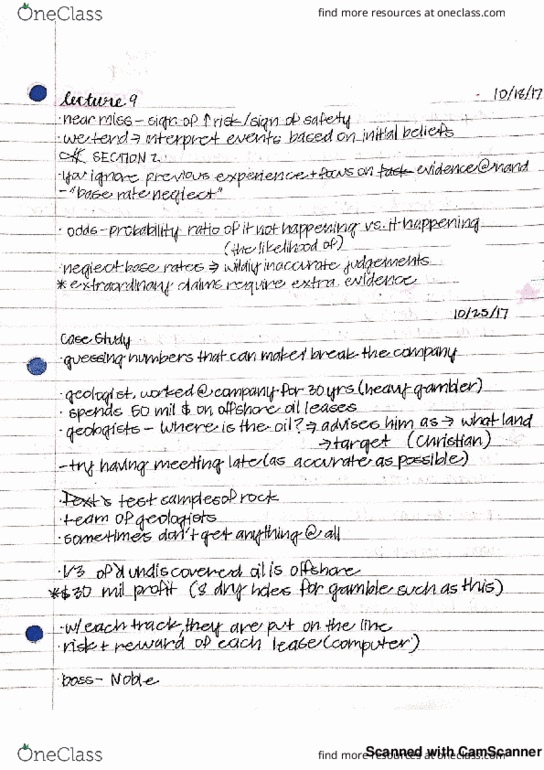 OneClass
find more resources at oneclass.com
10/18/17
lecture 9
·near miss - sign of ↑ risk/sign of safety
·we tend → interpret events based on initial beliefs
SECTION 2
·you ignore previous experience + focus on task evidence @ hand
- "base rate neglect"
· odds - probability ratio of it not happening vs. it happening
(the likelihood of)
·neglect base rates → wildly inaccurate judgements
* extraordinary claims require extra evidence
10/25/17
Case Study
·guessing numbers that can make/break the company
·geologist, worked @ company for 30 yrs (heavy gambler)
· spends 50 mil $ on offshore oil leases
·geologists - where is the oil? → advises him as → what land
→ target (Christian)
- try having meeting late (as accurate as possible)
·Text's test samples of rock
·team of geologists
·sometimes don't get anything @ all
·1/3 of undiscovered oil is offshore
*$30 mil profit (8 dry holes for gamble such as this)
·w/ each track, they are put on the line
·risk + reward of each lease (computer)
boss - Noble
OneClass
find more resources at oneclass.com
Scanned with CamScanner